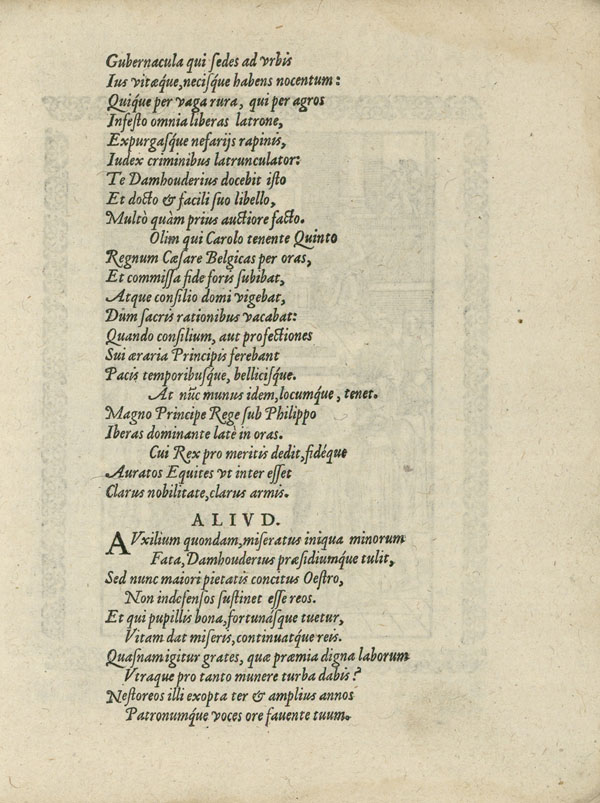 Gubernacula qui sedes ad vrbis
Ius vitæque,necisque habens nocentum:
Quique per vaga rura, qui per agros
Infesto omnia liberas latrone,
Expurgasque nefarijs rapinis,
Iudex criminibus latrunculator:
Te Damhouderius docebit isto
Et docto & facili suo libello,
Multò quàm prius auctiore facto.
Olim qui Carolo tenente Quinto
Regnum Cæsare Belgicas per oras,
Et commissa fide foris subibat,
Atque consilio domi vigebat,
Dùm sacris rationibus vacabat:
Quando consilium, aut profectiones
Sui æraria Principis ferebant
Pacis temporibusque, bellicisque.
At nũc munus idem,locumque, tenet.
Magno Principe Rege sub Philippo
Iberas dominante latè in oras.
Cui Rex pro meritis dedit,fidéque
Auratos Equites vt inter esset
Clarus nobilitate,clarus armis.
ALIVD.
AVxilium quondam,miseratus iniqua minorum
Fata,Damhouderius præsidiumque tulit,
Sed nunc maiori pietatis concitus Oestro,
Non indefensos sustinet esse reos.
Et qui pupillis bona,fortunásque tuetur,
Vitam dat miseris,continuatque reis.
Quasnam igitur grates, quæ præmia digna laborum
Vtraque pro tanto munere turba dabis?
Nestoreos illi exopta ter & amplius annos
Patronumque voces ore fauente tuum.